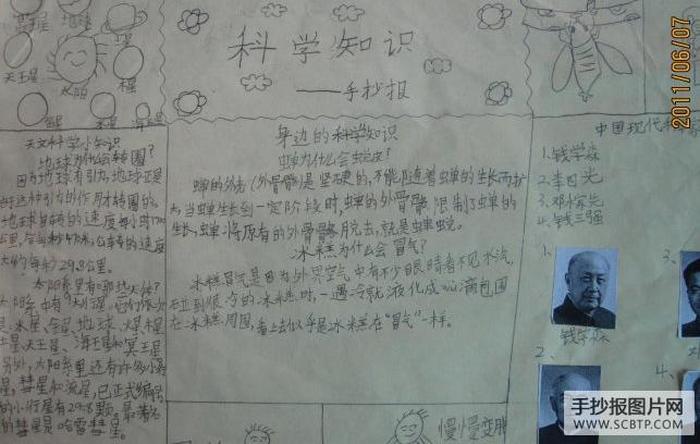 科学知识
——手抄报
2011/06/07
地球
天王星
太阳
木星
天文科学小知识
地球为什么会转圈?
因为地球有引力,地球正是
由于这种引力的作用才转圈的。
地球自转的速度
大约每秒29.8公里。
太阳系里有哪些天体?
是水星、金星、地球、火星、木星
土星、天王星、海王星和冥王星
另外,太阳系里还有许多小行
星,彗星和流星,已正式编号
的小行星有2958颗。最著名
的彗星是哈雷彗星。
身边的科学知识
蝉为什么会蜕皮?
蝉的外壳(外骨骼)是坚硬的,不能随着蝉的生长而扩
大,当蝉生长到一定阶段时,蝉的外骨骼限制了蝉的
生长,蝉将原有的外骨骼脱去,就是蝉蜕。
冰糕为什么会冒气?
冰糕冒气是因为外界空气中有不少眼睛看不见水汽,
碰到很冷的冰糕时,一遇冷就液化成雾滴包围
在冰糕周围,看上去似乎是冰糕在“冒气”一样。
中国现代科
1、钱学森
2、李四光
3、邓稼先
4、钱三强
1、
钱学森
3、
2、
4、
慢慢变胖
手抄报图片网
WWW.SCBTP.COM